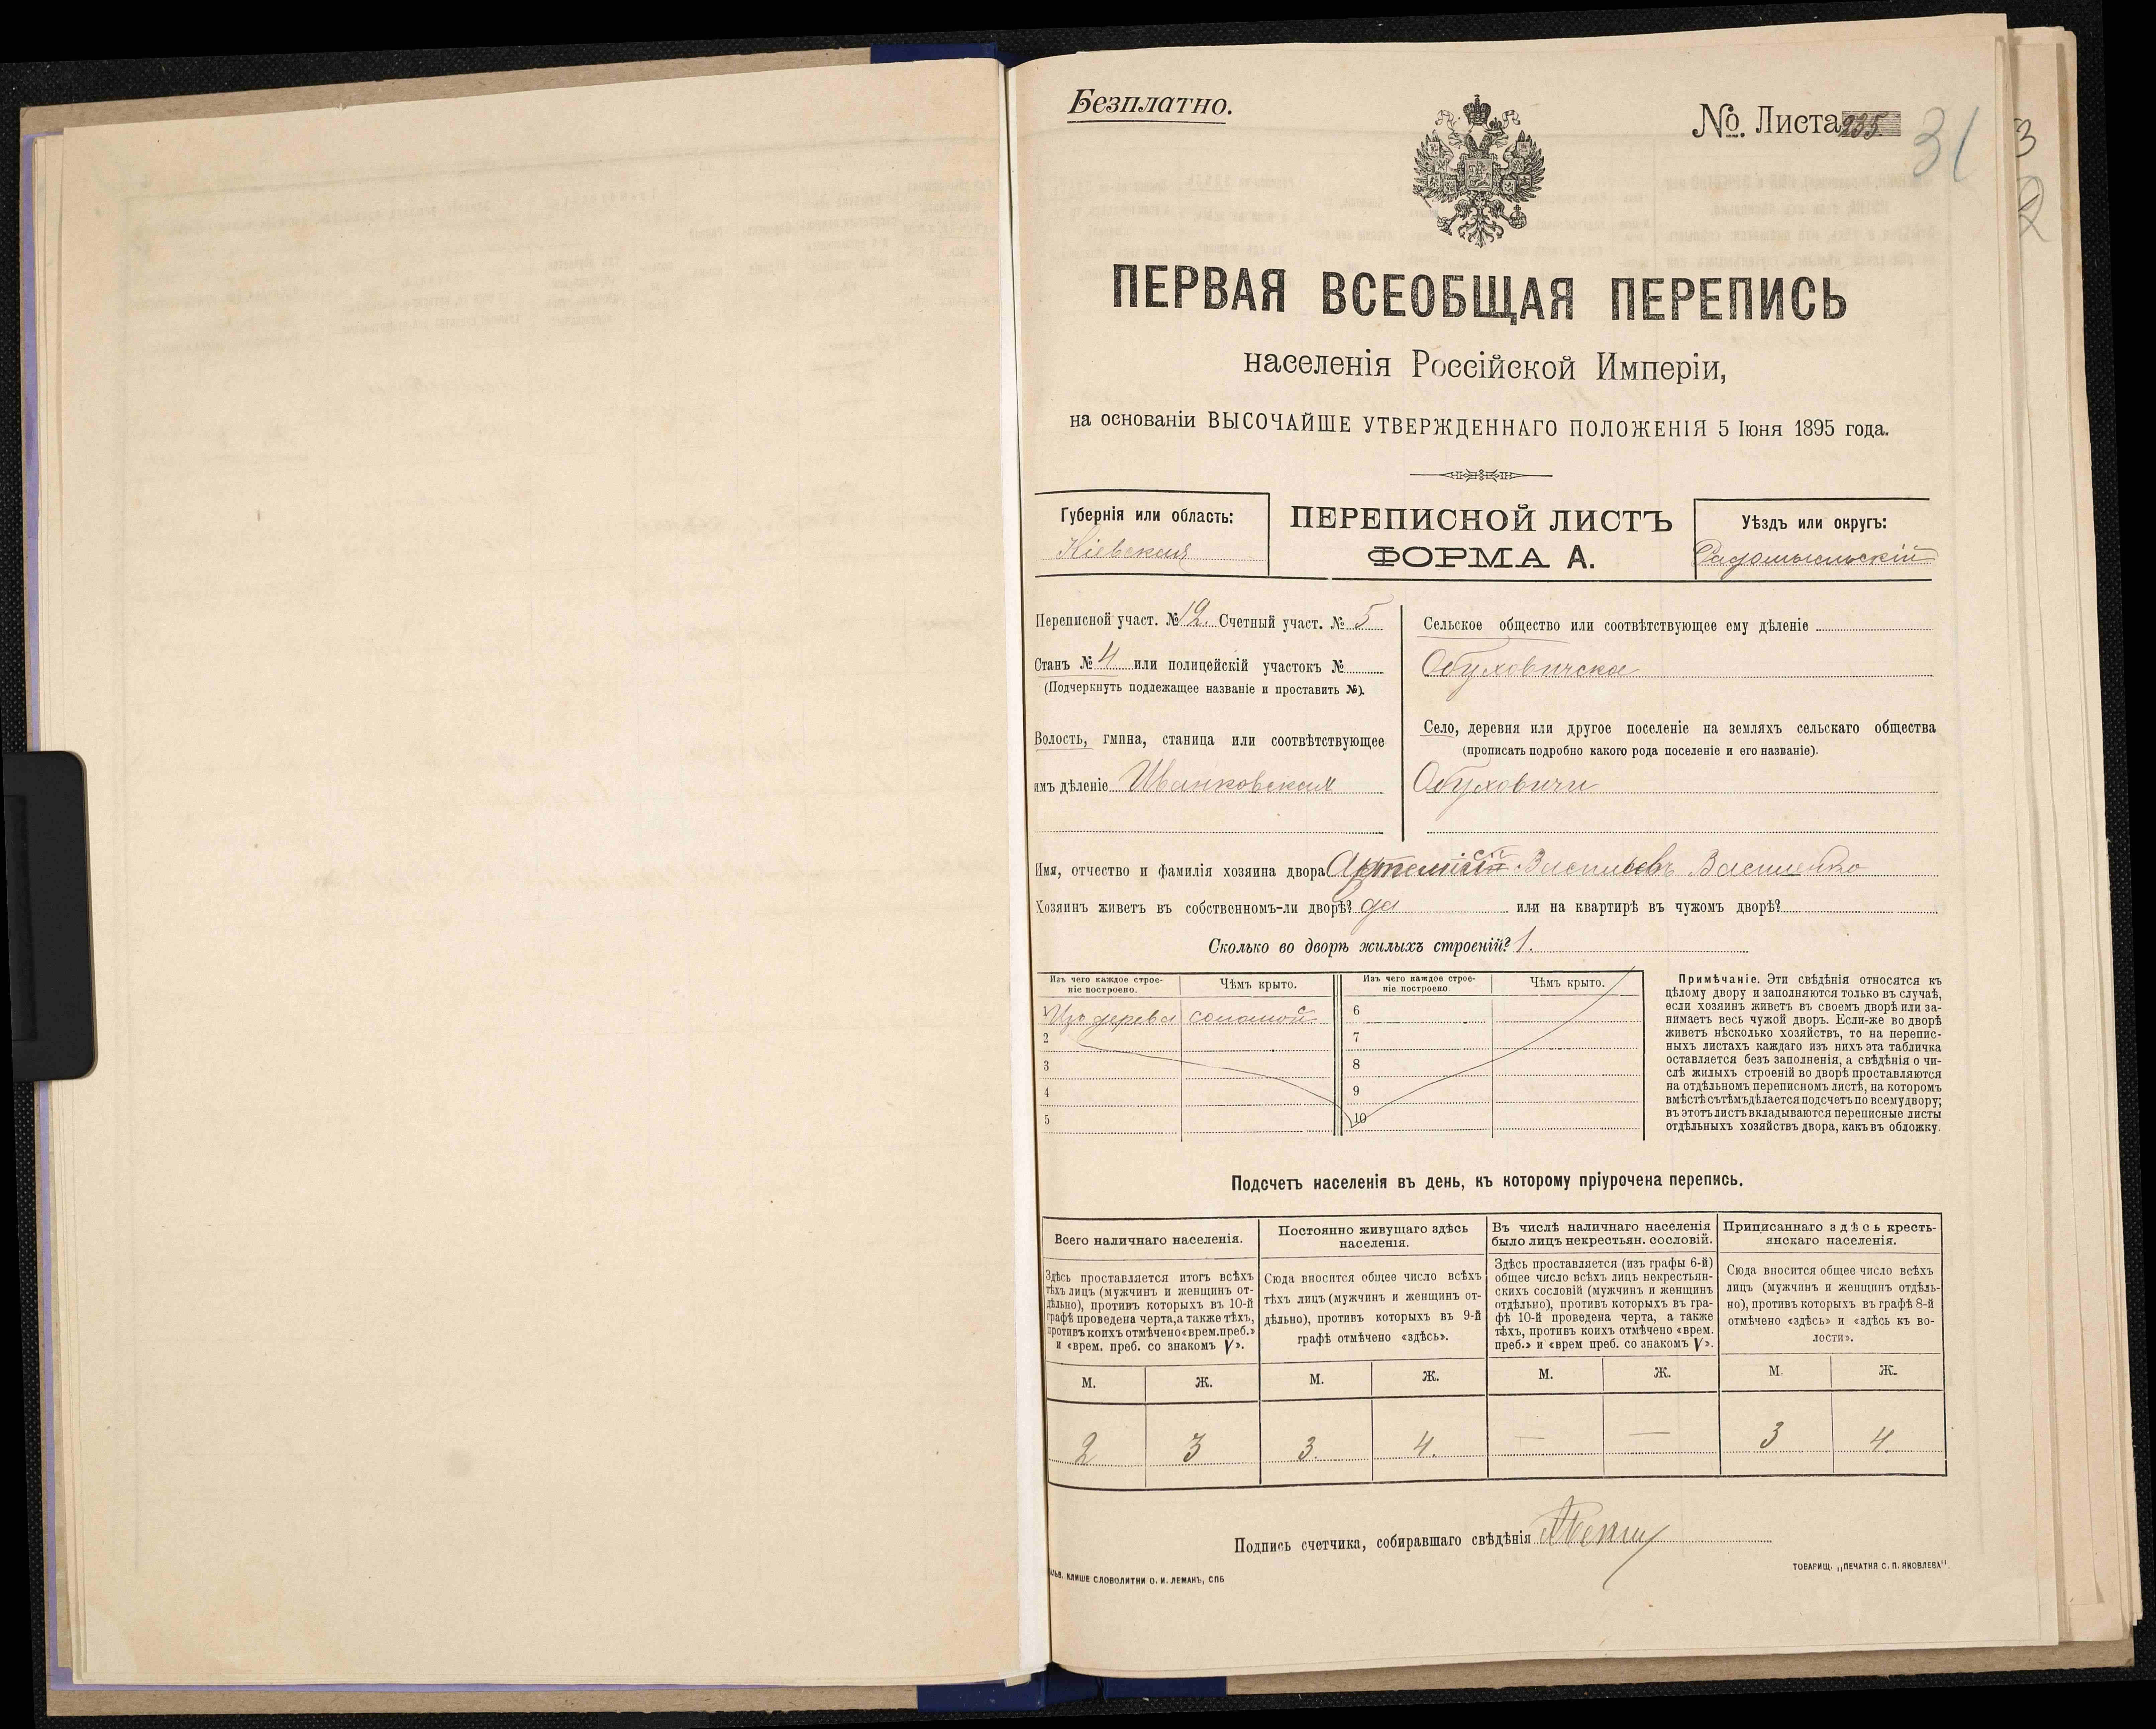 Безплатно.
№. Листа 235.
31
3
2
ПЕРВАЯ ВСЕОБЩАЯ ПЕРЕПИСЬ
населенія Россійской Имперіи,
на основаніи ВЫСОЧАЙШЕ УТВЕРЖДЕННАГО ПОЛОЖЕНІЯ 5 Іюня 1895 года.
Губернія или область:
Кіевская
ПЕРЕПИСНОЙ ЛИСТЪ
ФОРМА А.
Уѣздъ или округъ:
Радомысльскій
Переписной участ. № 12. Счетный участ. № 5
Станъ № 4 или полицейскій участокъ №
(Подчеркнуть подлежащее названіе и проставить №).
Волость, гмина, станица или соотвѣтствующее
имъ дѣленіе Иванковская
Сельское общество или соотвѣтствующее ему дѣленіе
Обуховичское
Село, деревня или другое поселеніе на земляхъ сельскаго общества
(прописать подробно какого рода поселеніе и его названіе).
Обуховичи
Имя, отчество и фамилія хозяина двора Васильевъ Василенко
Хозяинъ живетъ въ собственномъ-ли дворѣ? да или на квартирѣ въ чужомъ дворѣ?
Сколько во дворѣ жилыхъ строеній? 1.
Изъ чего каждое строе-
ніе построено.
Чѣмъ крыто.
Изъ чего каждое строе-
ніе построено
Чѣмъ крыто.
1 Изъ дерева соломой
2
3
4
5
6
7
8
9
10
Примѣчаніе. Эти свѣдѣнія относятся къ
цѣлому двору и заполняются только въ случаѣ,
если хозяинъ живетъ въ своемъ дворѣ или за-
нимаетъ весь чужой дворъ. Если-же во дворѣ
живетъ нѣсколько хозяйствъ, то на перепис-
ныхъ листахъ каждаго изъ нихъ эта табличка
оставляется безъ заполненія, а свѣдѣнія о чи-
слѣ жилыхъ строеній во дворѣ проставляются
на отдѣльномъ переписномъ листѣ, на которомъ
вмѣстѣ съ тѣмъ дѣлается подсчетъ по всему двору;
въ этотъ листъ вкладываются переписные листы
отдѣльныхъ хозяйствъ двора, какъ въ обложку.
Подсчетъ населенія въ день, къ которому пріурочена перепись.
Всего наличнаго населенія.
Здѣсь проставляется итогъ всѣхъ
тѣхъ лицъ (мужчинъ и женщинъ от-
дѣльно), противъ которыхъ въ 10-й
графѣ проведена черта, а также тѣхъ,
противъ коихъ отмѣчено «врем. преб.»
и «врем. преб. со знакомъ V».
Постоянно живущаго здѣсь
населенія.
Сюда вносится общее число всѣхъ
тѣхъ лицъ (мужчинъ и женщинъ от-
дѣльно), противъ которыхъ въ 9-й
графѣ отмѣчено «здѣсь».
Въ числѣ наличнаго населенія
было лицъ некрестьян. сословій.
Здѣсь проставляется (изъ графы 6-й)
общее число всѣхъ лицъ некрестьян-
скихъ сословій (мужчинъ и женщинъ
отдѣльно), противъ которыхъ въ гра-
фѣ 10-й проведена черта, а также
тѣхъ, противъ коихъ отмѣчено «врем.
преб.» и «врем преб. со знакомъ V».
Приписаннаго здѣсь кресть-
янскаго населенія.
Сюда вносится общее число всѣхъ
лицъ (мужчинъ и женщинъ отдѣль-
но), противъ которыхъ въ графѣ 8-й
отмѣчено «здѣсь» и «здѣсь къ во-
лости».
М. Ж. М. Ж. М. Ж. М. Ж.
2 3 3. 4. — — 3 4.
Подпись счетчика, собиравшаго свѣдѣнія
КЛИШЕ СЛОВОЛИТНИ О. И. ЛЕМАНЪ, СПБ
ТОВАРИЩ. „ПЕЧАТНЯ С. П. ЯКОВЛЕВА".